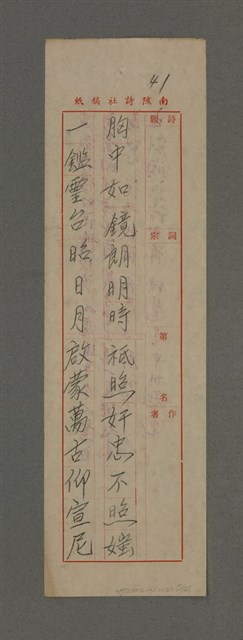 41
南陔詩社稿紙
詩題
詞宗
第 名
作者
胸中如鏡朗明時祗照奸忠不照媸
一鑑靈台昭日月啟蒙萬古仰宣尼